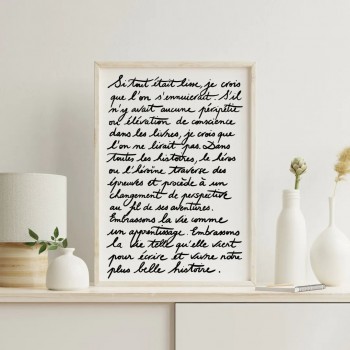 Si tout était lisse, je crois
que l'on s'ennuierait. S'il
n'y avait aucune péripétie
ou élévation de conscience
dans les livres, je crois que
l'on ne lirait pas. Dans
toutes les histoires, le héros
ou l'héroïne traverse des
épreuves et procède à un
changement de perspective
au fil de ses aventures.
Embrassons la vie comme
un apprentissage. Embrassons
la vie telle qu'elle vient
pour écrire et vivre notre
plus belle histoire.